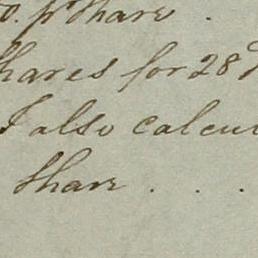 0. pr Share .
Shares for 28
I also calcu
Share . . .